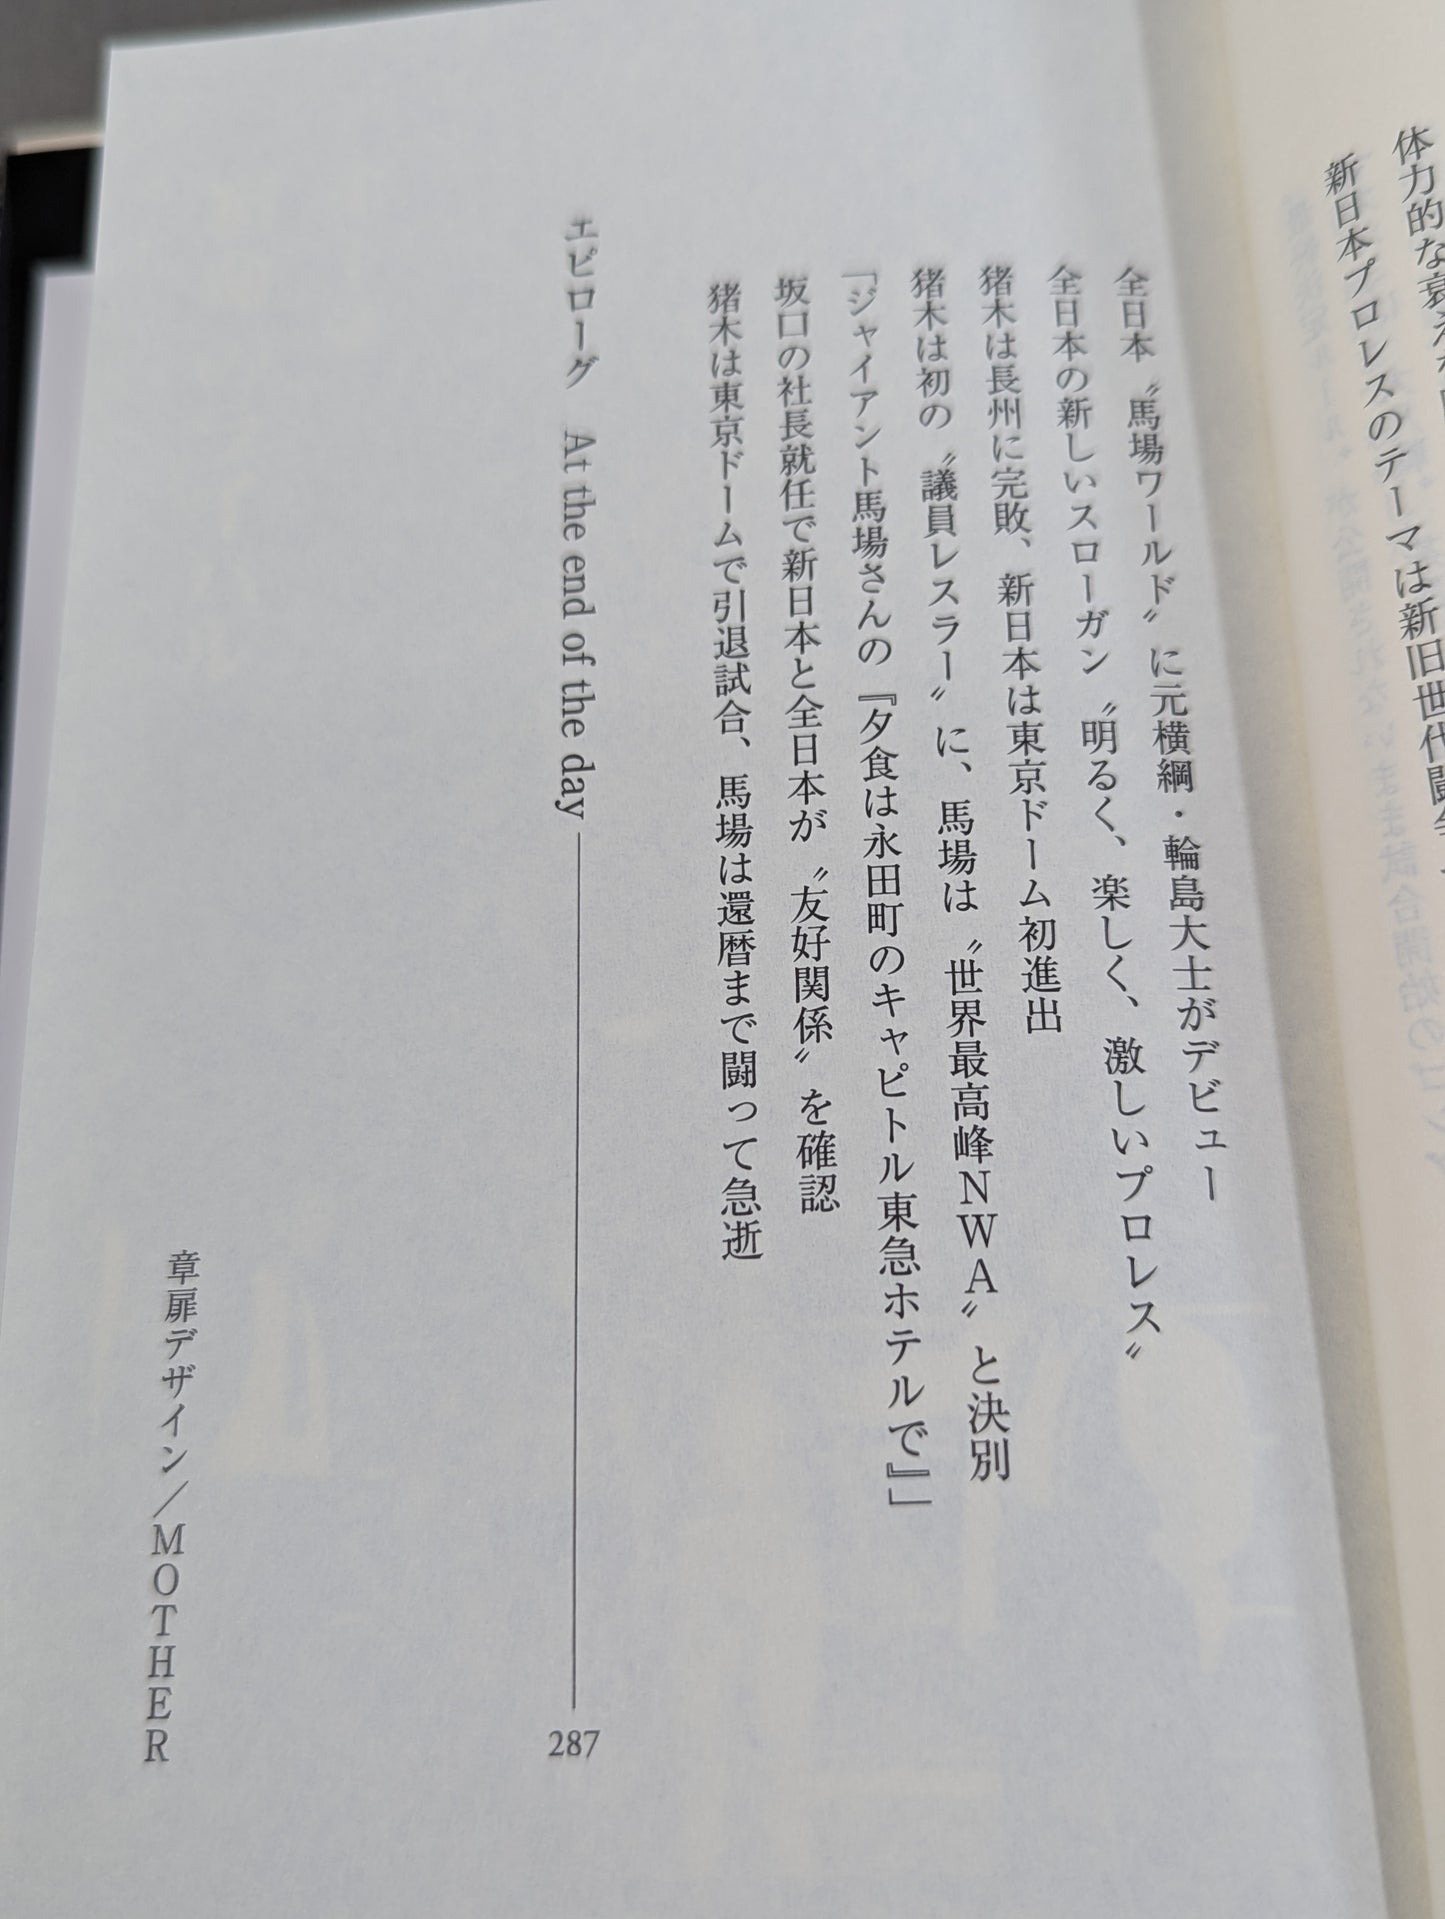 新日本プロレスのテーマは新旧世代闘争
全日本〝馬場ワールド〟に元横綱・輪島大士がデビュー
全日本の新しいスローガン〝明るく、楽しく、激しいプロレス〟
猪木は長州に完敗、新日本は東京ドーム初進出
猪木は初の〝議員レスラー〟に、馬場は〝世界最高峰NWA〟と決別
「ジャイアント馬場さんの『夕食は永田町のキャピトル東急ホテルで』」
坂口の社長就任で新日本と全日本が〝友好関係〟を確認
猪木は東京ドームで引退試合、馬場は還暦まで闘って急逝
エピローグ　At the end of the day 287
章扉デザイン／MOTHER